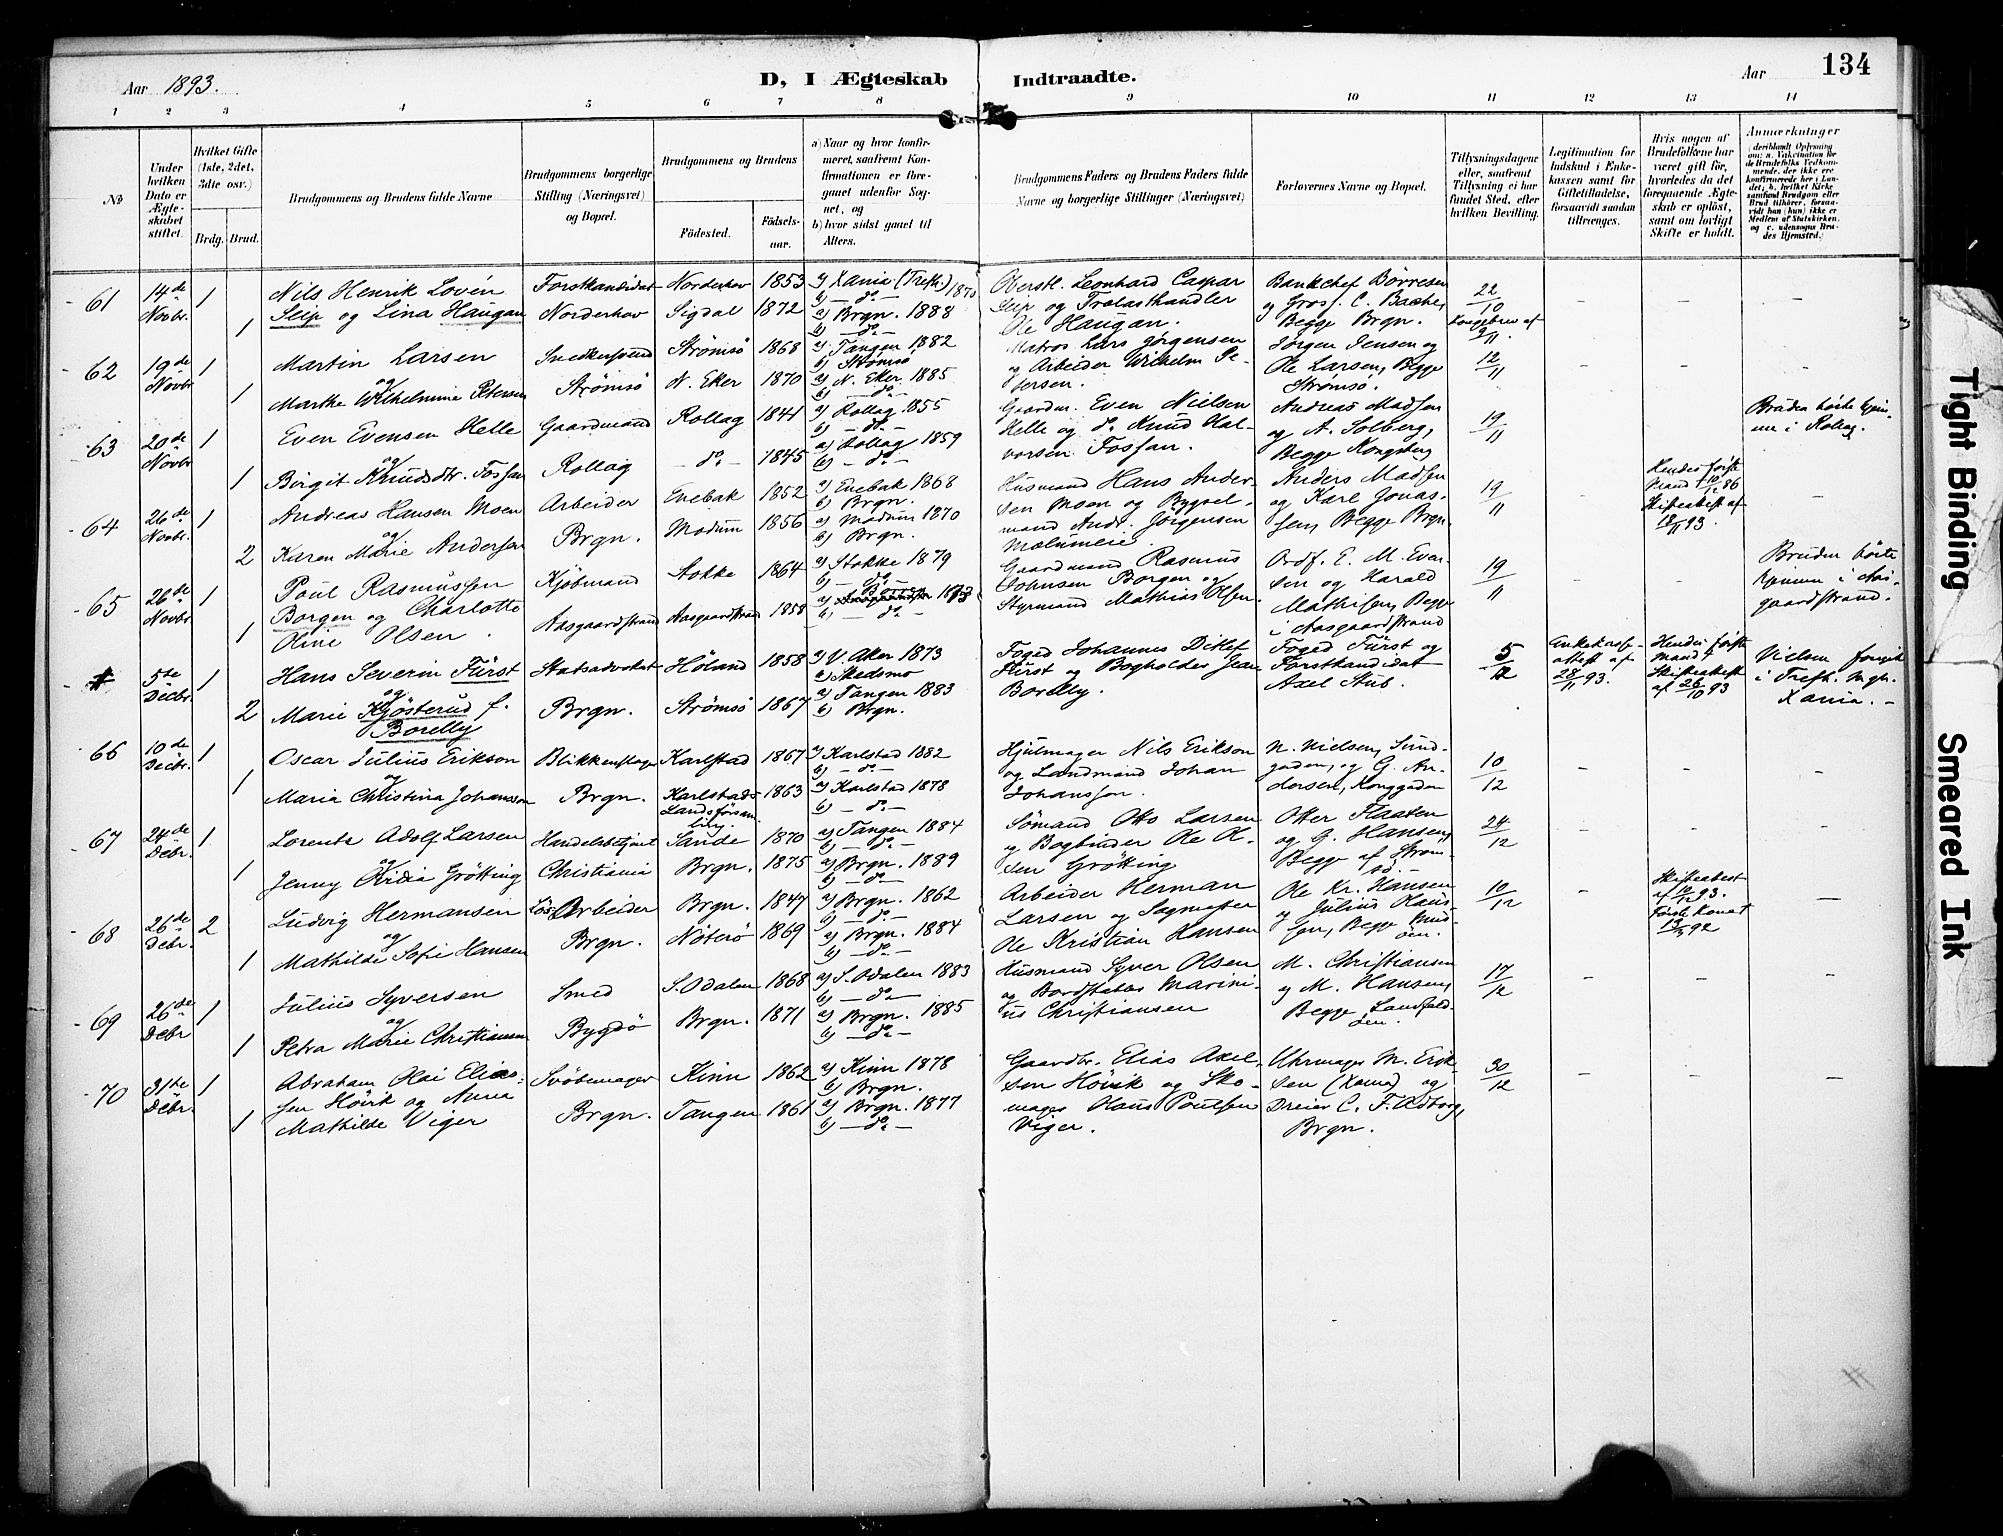 134
Aar 1893.
D, I Ægteskab Indtraadte.
Aar
1 2 3 4 5 6 7 8 9 10 11 12 13 14
№
Under hvilken Dato er Ægteskabet stiftet.
Hvilket Gifte (1ste, 2det, 3die osv.)
Brdg. Brud.
Brudgommens og Brudens fulde Navne
Brudgommens borgerlige Stilling (Næringsvei) og Bopæl.
Brudgommens og Brudens
Fødested.
Fødselsaar.
a) Naar og hvor konfirmeret, saafremt Konfirmationen er foregaaet udenfor Sognet, og
b) hvor sidst gaaet til Alters.
Brudgommens Faders og Brudens Faders fulde Navne og borgerlige Stillinger (Næringsvei)
Forlovernes Navne og Bopæl.
Tillysningsdagene eller, saafremt Tillysning ei har fundet Sted, efter hvilken Bevilling.
Legitimation for Indskud i Enkekassen samt for Giftetilladelse, forsaavidt saadan tiltrænges.
Hvis nogen af Brudefolkene har været gift før, hvorledes da det foregaaende Ægteskab er opløst, samt om lovligt Skifte er holdt.
Anmærkninger
61 14de Novbr. 1 Nils Henrik Lovén Forstkandidat Norderhov 1853 a) Xania (Trefh.) 1870 Oberstl. Leonhard Caspar Bankchef Børresen 22/10
1 Seip og Lina Haugan Norderhov Sigdal 1872 b) – do – a) Brgn. 1888 Seip og Trælasthandler og Gross. C. Bache, Kongebrev af 9/11.
b) – do – Ole Haugan. Begge Brgn.
62 19de Novbr 1 Martin Larsen Snedkersvend Strömsö 1868 a) Tangen 1882 Matros Lars Jörgensen Jörgen Jensen og 12/11
og b) Strömsö og Arbeider Wilhelm Pe- Ole Larsen, Begge
1 Marthe Wilhelmine Petersen Strömsö N. Eker 1870 a) N. Eker 1885 b) – do – tersen. Strömsö.
63 20de Novbr 1 Even Evensen Helle Gaardmand Rollag 1841 a) Rollag 1855 Gaardm. Even Nielsen Andreas Madsen 19/11 Bruden hörte hjem-
og b) – do – Helle og do. Knud Hal- og A. Solberg, me i Rollag
1 Birgit Knudsdtr. Fossan Rollag – do – 1845 a) Rollag 1859 b) – do – vorsen Fossan. Begge Kongsberg
64 26de Novbr. 1 Andreas Hansen Moen Arbeider Enebak 1852 a) Enebak 1868 Husmand Hans Ander- Anders Madsen 19/11 Hendes förste
og b) Brgn. sen Moen og Bygsel- og Karl Jonas- Mand † 10/12 86
2 Karen Marie Andersen Brgn. Modum 1856 a) Modum 1870 b) Brgn. mand Andr. Jörgensen sen, Begge Brgn. Skifteattest af 18/11 93.
65 26de Novbr. 1 Poul Rasmussen Kjöbmand Stokke 1864 a) Stokke 1879 Gaardmand Rasmus Ordf. E. M. Even- 19/11 Bruden hörte
Borgen og Charlotte b) – do – Johnsen Borgen og sen og Harald hjemme i Aas-
1 Oline Olsen. Aasgaardstrand Aasgaardstrand 1858 a) Borre 1873 b) – do – Styrmand Mathias Olsen. Mathisen, Begge i Aasgaardstrand gaardstrand.
5te Decbr. 1 Hans Severin Fürst Statsadvokat Höland 1858 a) V. Aker 1873 Foged Johannes Ditlef Foged Fürst og 5/12 Enkekasse- Hendes förste
og b) Skedsmo Fürst og Bogholder Jean Forstkandidat attest af mand †
2 Marie Kjösterud f. Brgn. Strömsö 1867 a) Tangen 1883 Borelly. Axel Stub. 28/11 93. Skifteattest af 26/10 93
Borelly b) Brgn. Vielsen foregik i Trefh. Mgh. Xania. –
66 10de Decbr. 1 Oscar Julius Erikson Blikkenslager Karlstad 1867 a) Karlstad 1882 Hjulmager Nils Erikson N. Nielsen, Sund- 10/12
og b) – do – og Landmand Johan gaden, og G. An-
1 Maria Christina Johansson Brgn. Karlstads Landsförsamling. 1863 a) Karlstad 1878 b) – do – Johansson. dersen, Konggaden
67 24de Debr. 1 Lorents Adolf Larsen Handelsbetjent Sande 1870 a) Tangen 1884 Sömand Otto Larsen Otter Flaaten 24/12
og b) – do – og Bogbinder Ole Ol- og G. Hansen,
1 Jenny Ovidia Grötting Christiania Brgn. 1875 a) Brgn. 1889 b) – do – sen Grötting Begge af Ström-sö. –
68 26de Debr. 2 Ludvig Hermansen Lös Arbeider Brgn. 1847 a) Brgn. 1862 Arbeider Herman Ole Kr. Hansen 10/12 Skifteattest af 10/12 93.
og b) – do – Larsen og Sagmester og Julius Han- Förste kone †
1 Mathilde Sofie Hansen Brgn. Nöterö 1869 a) Brgn. 1884 b) – do – Ole Kristian Hansen sen, Begge 92
69 26de Debr 1 Julius Syversen Smed S. Odalen 1868 a) S. Odalen 1883 Husmand Syver Olsen M. Christiansen 17/12
og b) – do – og Bordstabler Marini- og M. Hansen,
1 Petra Marie Christiansen Bygdö Brgn. 1871 a) Brgn. 1885 b) – do – us Christiansen Begge Landfald-öen.
70 31te Debr. 1 Abraham Olai Elias- Svöbemager Kinn 1862 a) Kinn 1878 Gaardbr. Elias Axel- Uhrmager M. Erik- 30/12
sen Hövik og Anna b) Brgn. sen Hövik og Sko- sen (Xania) og
1 Mathilde Viger Brgn. Tangen 1861 a) Brgn. 1877 b) – do – mager Hans Poulsen Viger. Dreier C. F. Edborg, Brgn.
Tight Binding
Smeared Ink